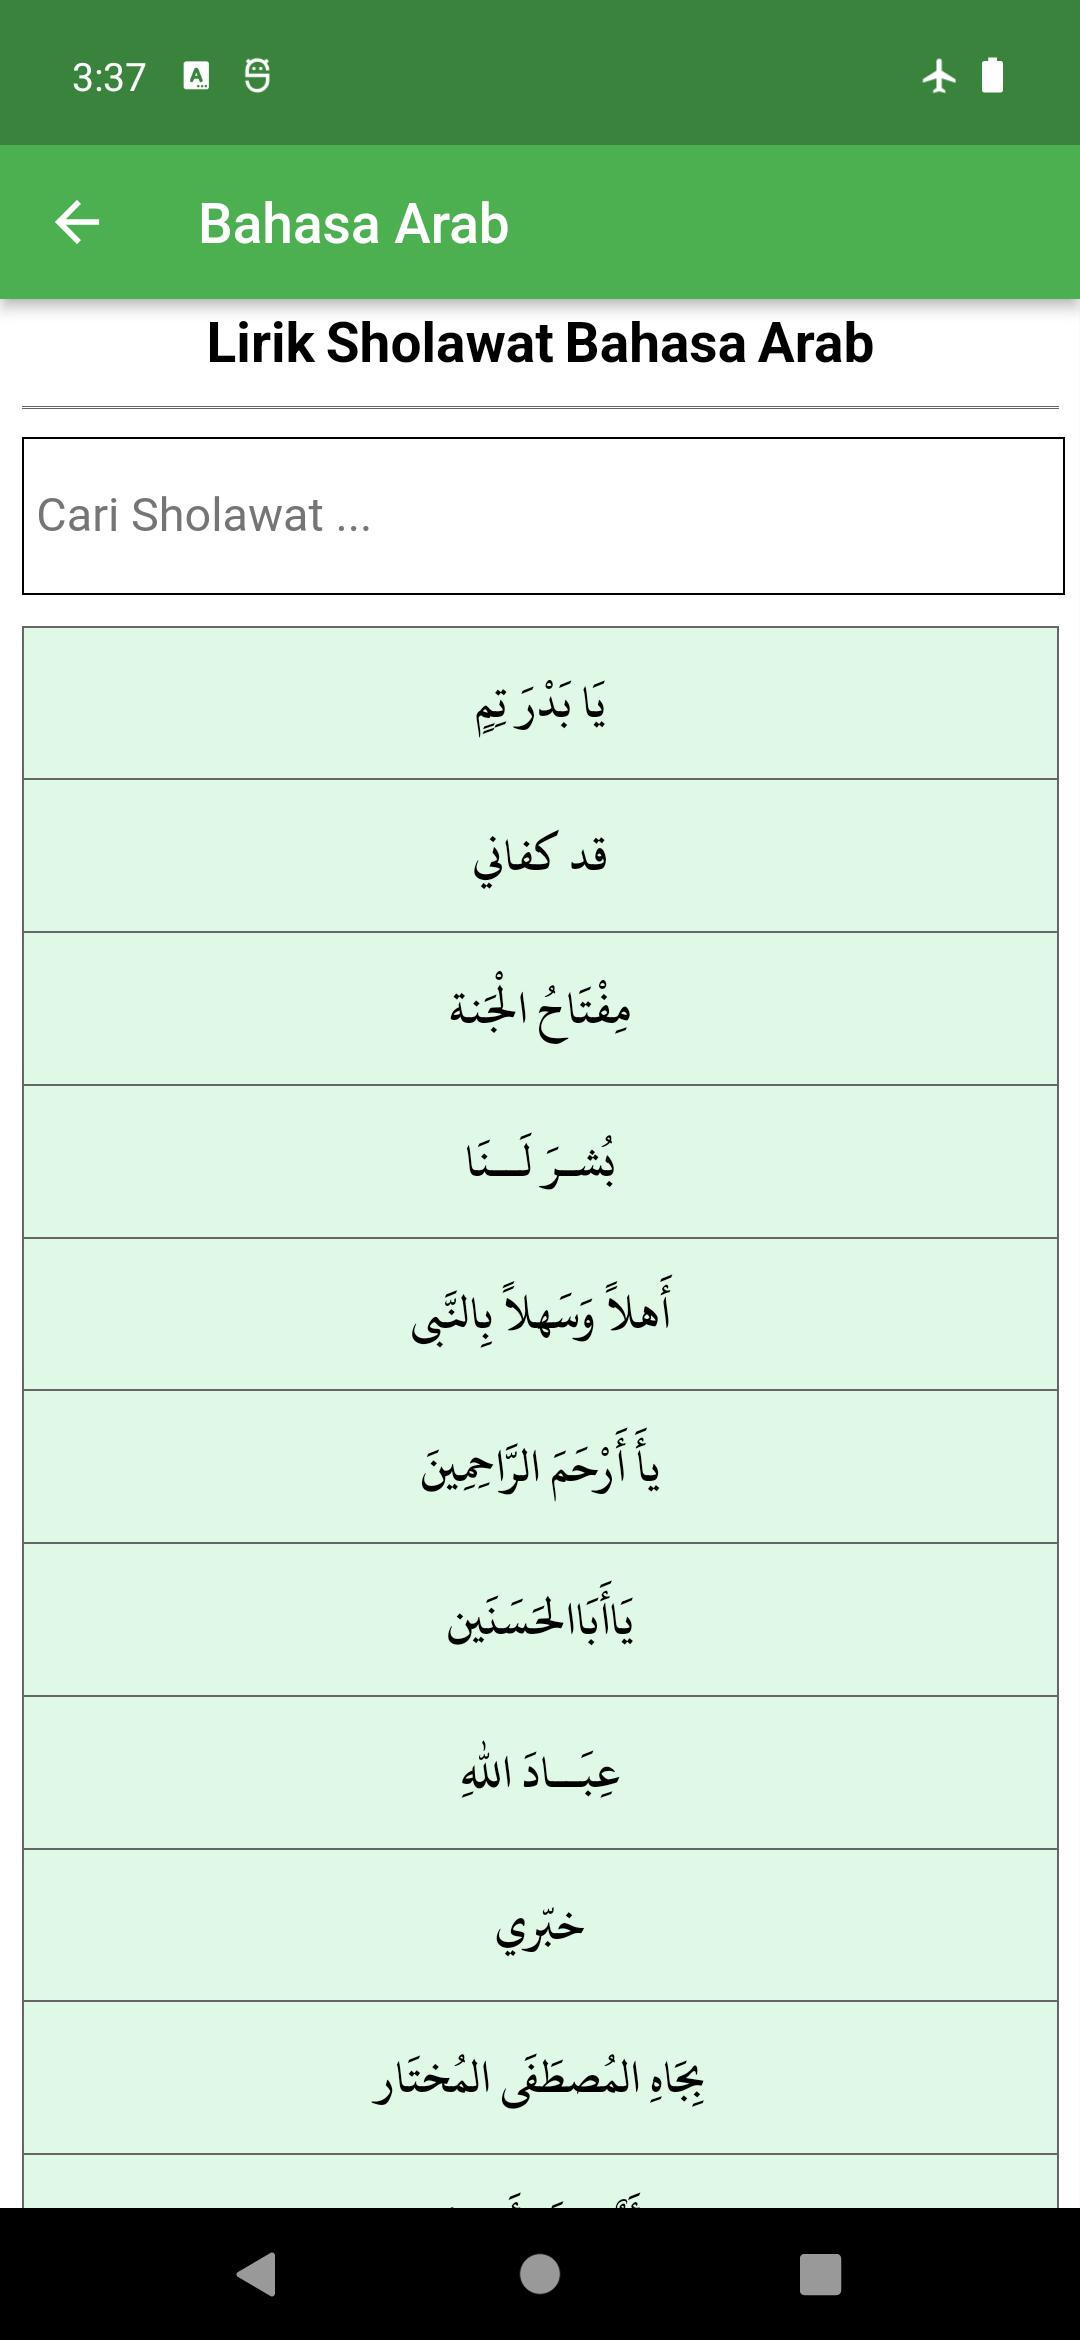 3:37
Bahasa Arab
Lirik Sholawat Bahasa Arab
Cari Sholawat ...
يَا بَدْرَ تِمٍ
قد كفاني
مِفْتَاحُ الْجَنة
بُشـرَ لَــنَا
أَهلاً وَسَهلاً بِالنَّبى
يأَ أَرْحَمَ الرَّاحِمِينَ
يَاأَبَاالحَسَنَين
عِبَــادَ اللهِ
خبّري
بِجَاهِ المُصطَفَى المُختَار